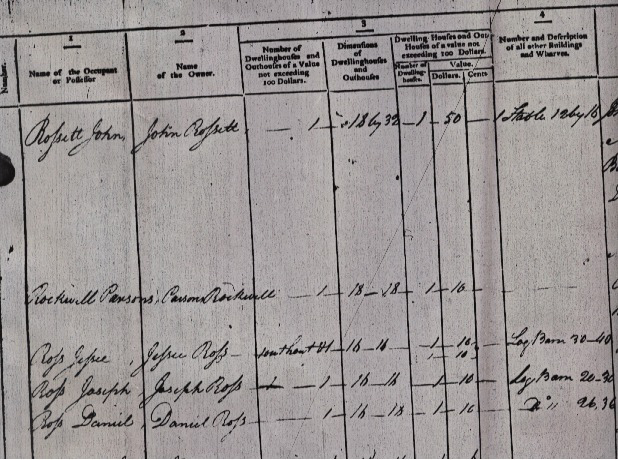 1 2 3 4
Number.
Name of the Occupant or Possessor
Name of the Owner.
Number of Dwellinghouses and Outhouses of a Value not exceeding 100 Dollars.
Dimensions of Dwellinghouses and Outhouses
Dwelling-Houses and Out-Houses of a value not exceeding 100 Dollars.
Number of Dwelling-houses.
Value.
Dollars. Cents
Number and Description of all other Buildings and Wharves.
Roſsett John, John Roſsett — 1 18 by 32 — 1 — 50 — 1 Stable 12 by 16
Rockwell Parsons, Parsons Rockwell — 1 — 18 — 18 — 1 — 10
Roſs Jeſsee, Jeſsee Roſs — 1 — 16 — 16 — 1 — 10 — Log Barn 30 — 40
1 — 10
Roſs Joseph, Joseph Roſs — 1 — 16 — 16 — 1 — 10 — Log Barn 20 - 30
Roſs Daniel, Daniel Roſs — 1 — 16 — 18 — 1 — 10 — Dº 11 26. 36